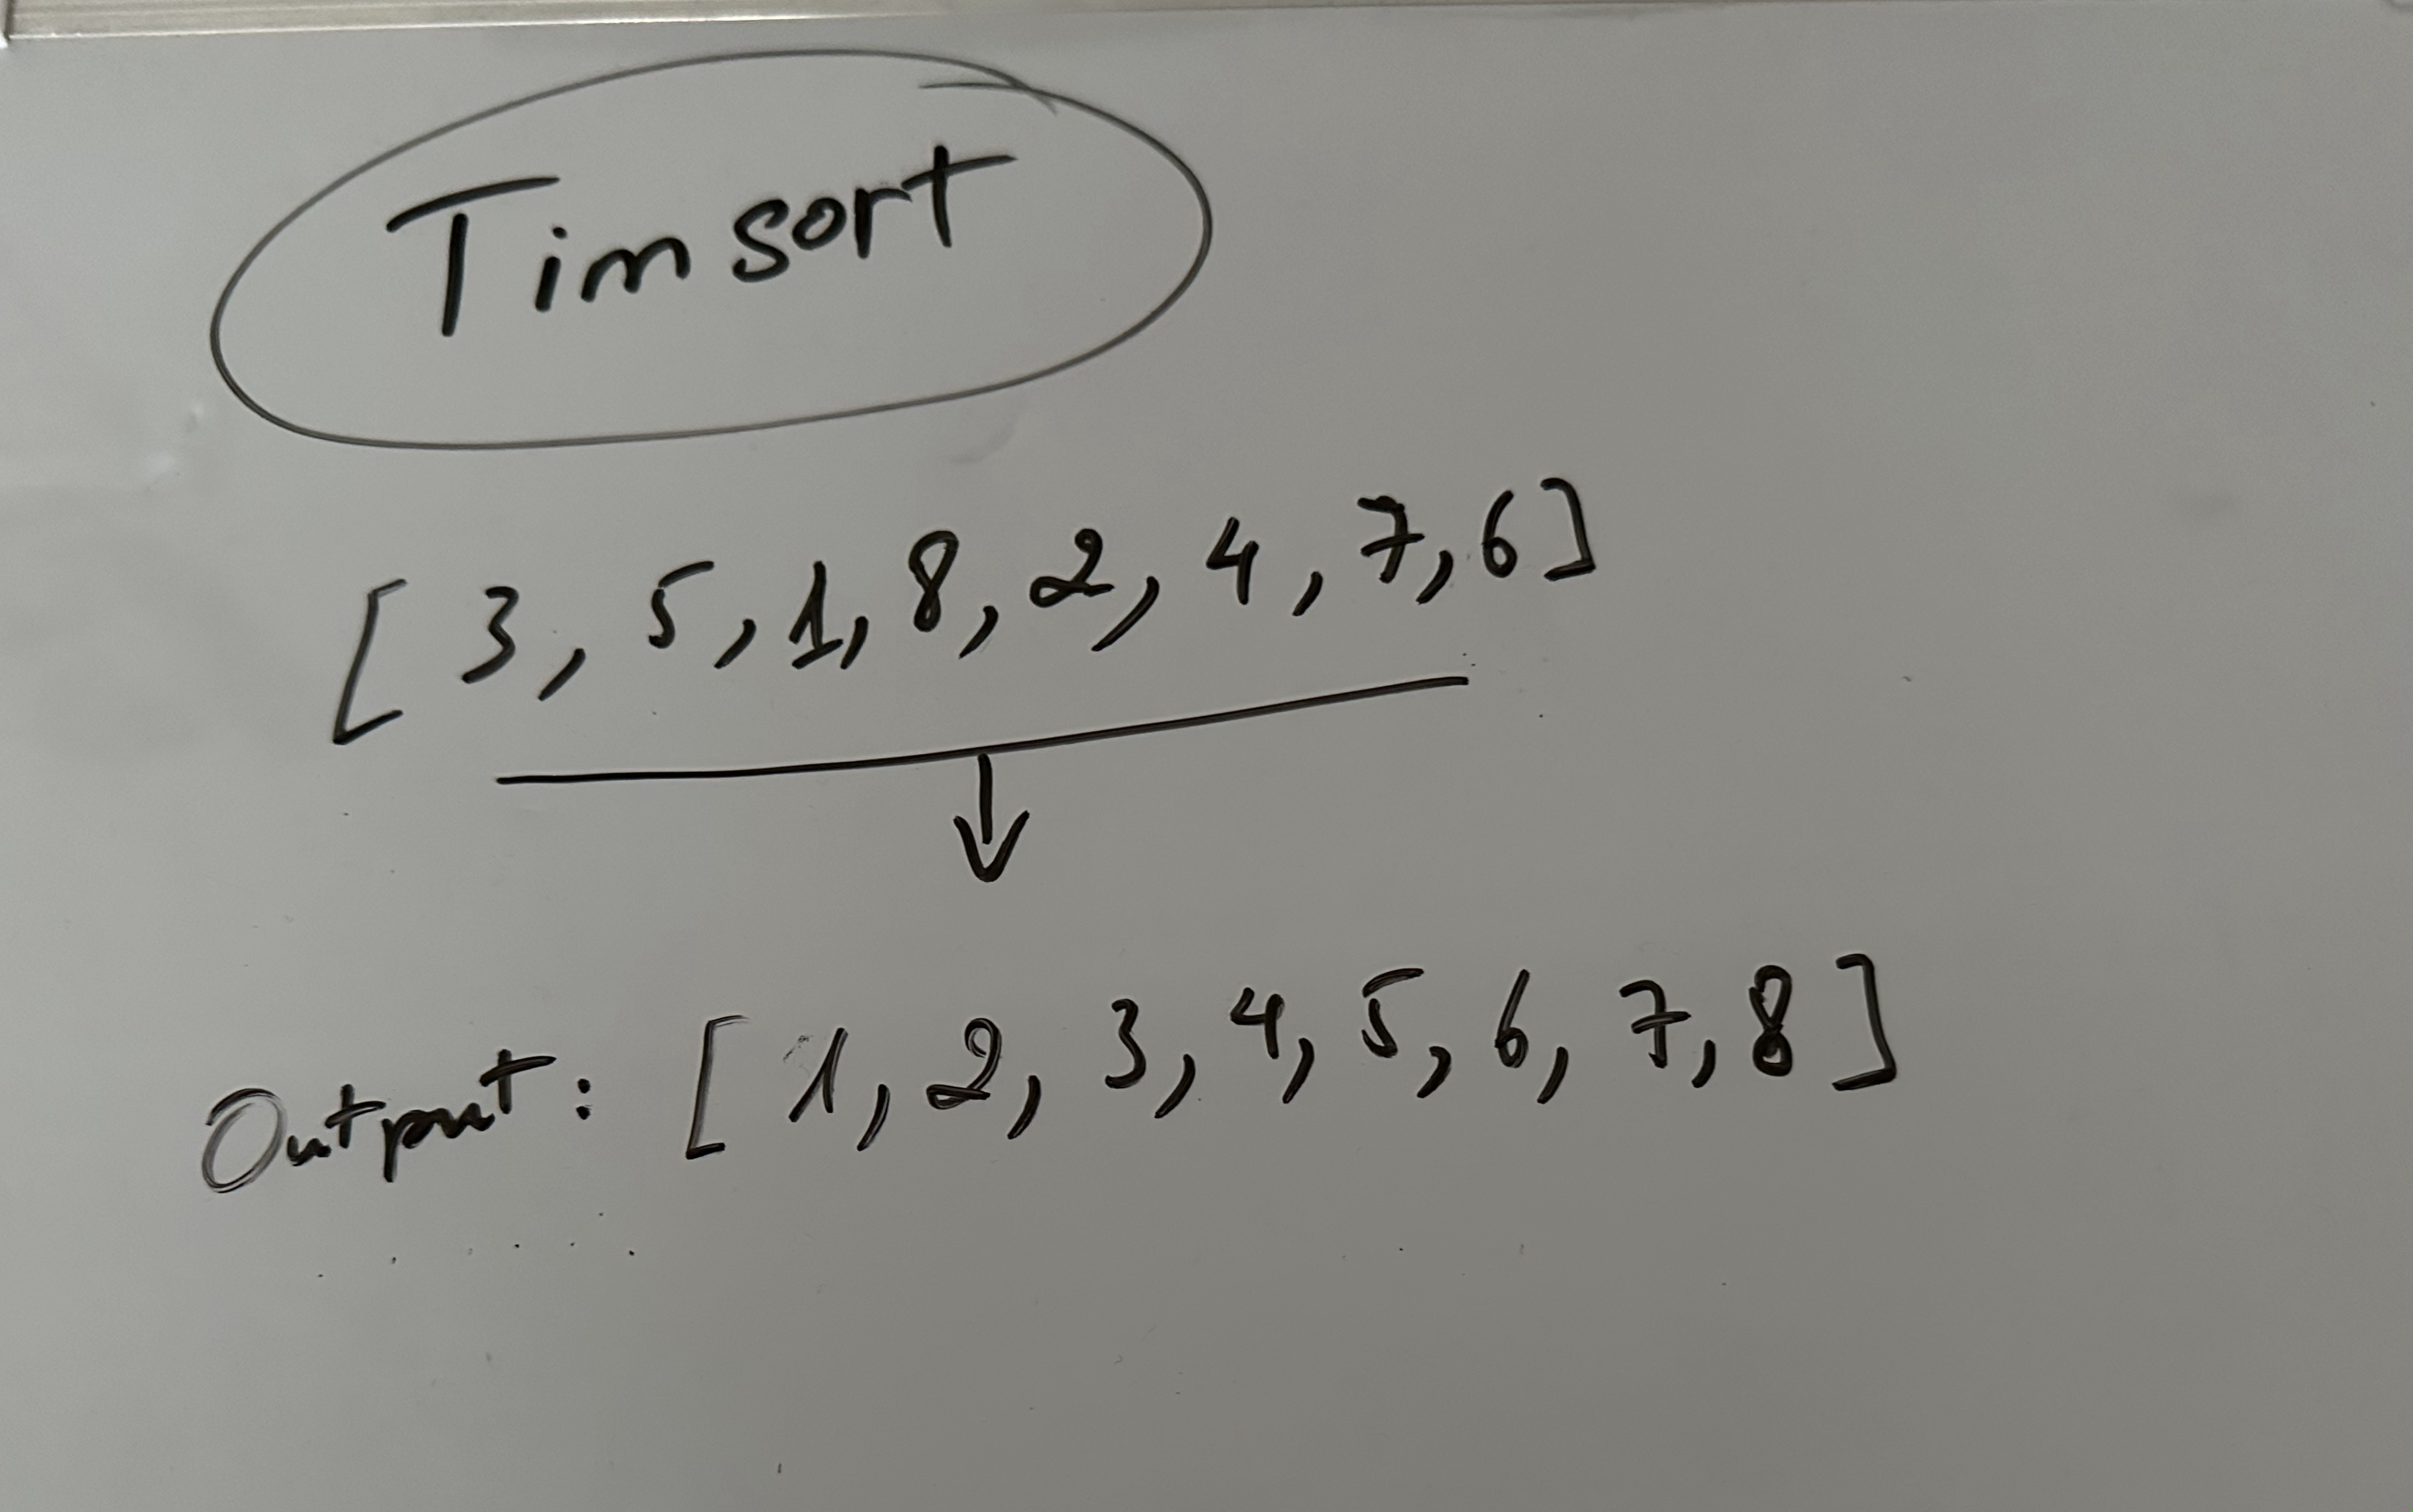 Timsort
[3, 5, 1, 8, 2, 4, 7, 6]
Output: [1, 2, 3, 4, 5, 6, 7, 8]